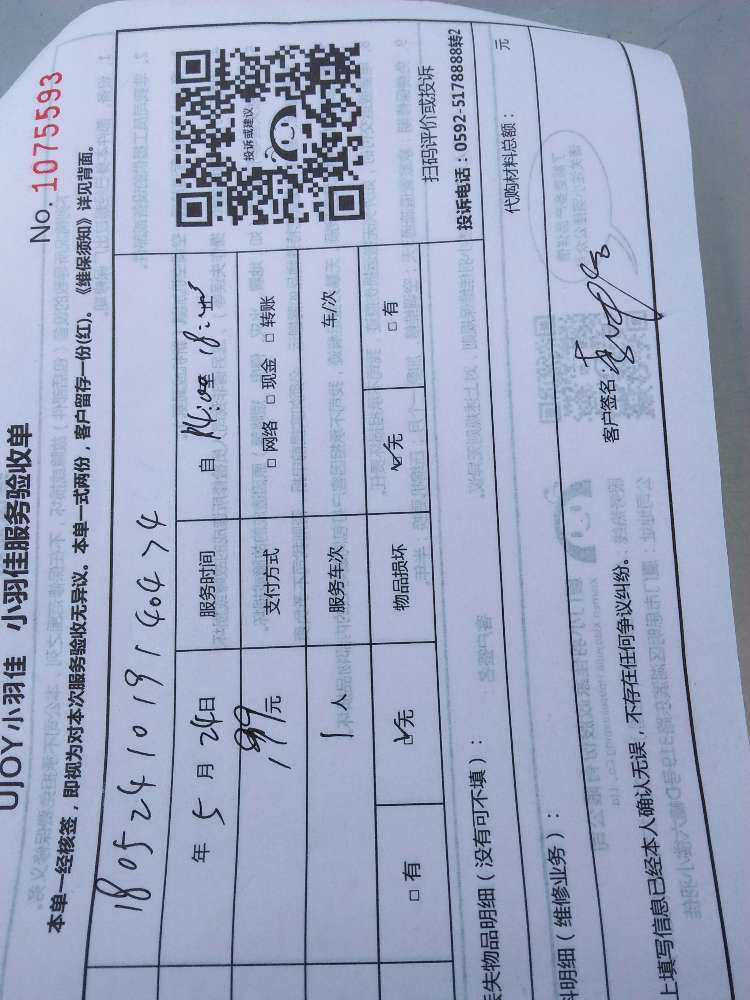 UJOY小羽佳 小羽佳服务验收单
No. 1075593
本单一经核签，即视为对本次服务验收无异议。本单一式两份，客户留存一份(红)。《维保须知》详见背面。
180524101911404
年 5 月 24日 服务时间 自 14:00至 18:
199元 支付方式 □ 网络 □ 现金 □ 转账
1 人 服务车次 车/次
□ 有 ☑无 物品损坏 ☑无 □ 有
投诉或建议
扫码评价或投诉
投诉电话：0592-5178888转2
失物品明细（没有可不填）：
代购材料总额： 元
明细（维修业务）：
上填写信息已经本人确认无误，不存在任何争议纠纷。
客户签名: